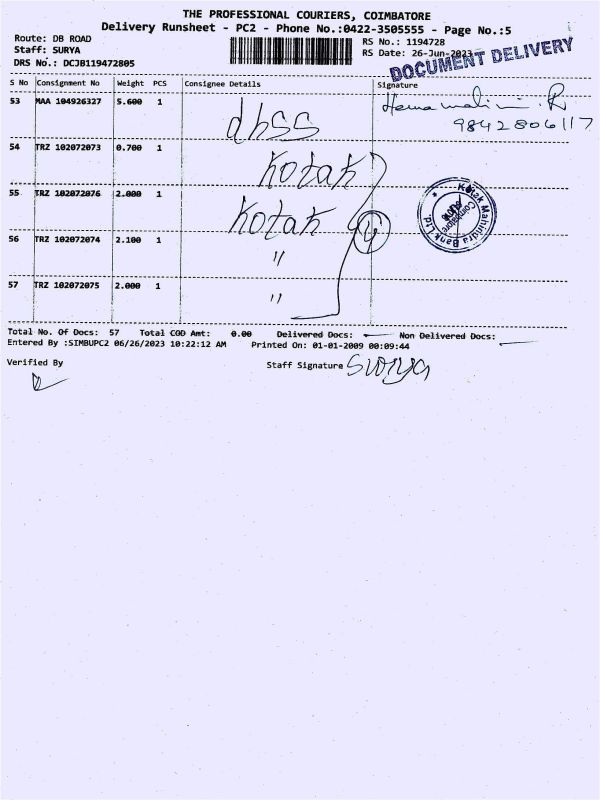 THE PROFESSIONAL COURIERS, COIMBATORE
Delivery Runsheet - PC2 - Phone No.:0422-3505555 - Page No.:5
Route: DB ROAD
Staff: SURYA
DRS No.: DCJB119472805
RS No.: 1194728
RS Date: 26-Jun-2023
DOCUMENT DELIVERY
S No Consignment No Weight PCS Consignee Details Signature
53 MAA 104926327 5.600 1 dhss Hemamalini. R
9842806117
54 TRZ 102072073 0.700 1 Kotak
55 TRZ 102072076 2.000 1 Kotak 4
56 TRZ 102072074 2.100 1 "
57 TRZ 102072075 2.000 1 "
Kotak Mahindra Bank Ltd.
Coimbatore
Total No. Of Docs: 57 Total COD Amt: 0.00 Delivered Docs: Non Delivered Docs:
Entered By :SIMBUPC2 06/26/2023 10:22:12 AM Printed On: 01-01-2009 00:09:44
Verified By
Staff Signature Surya